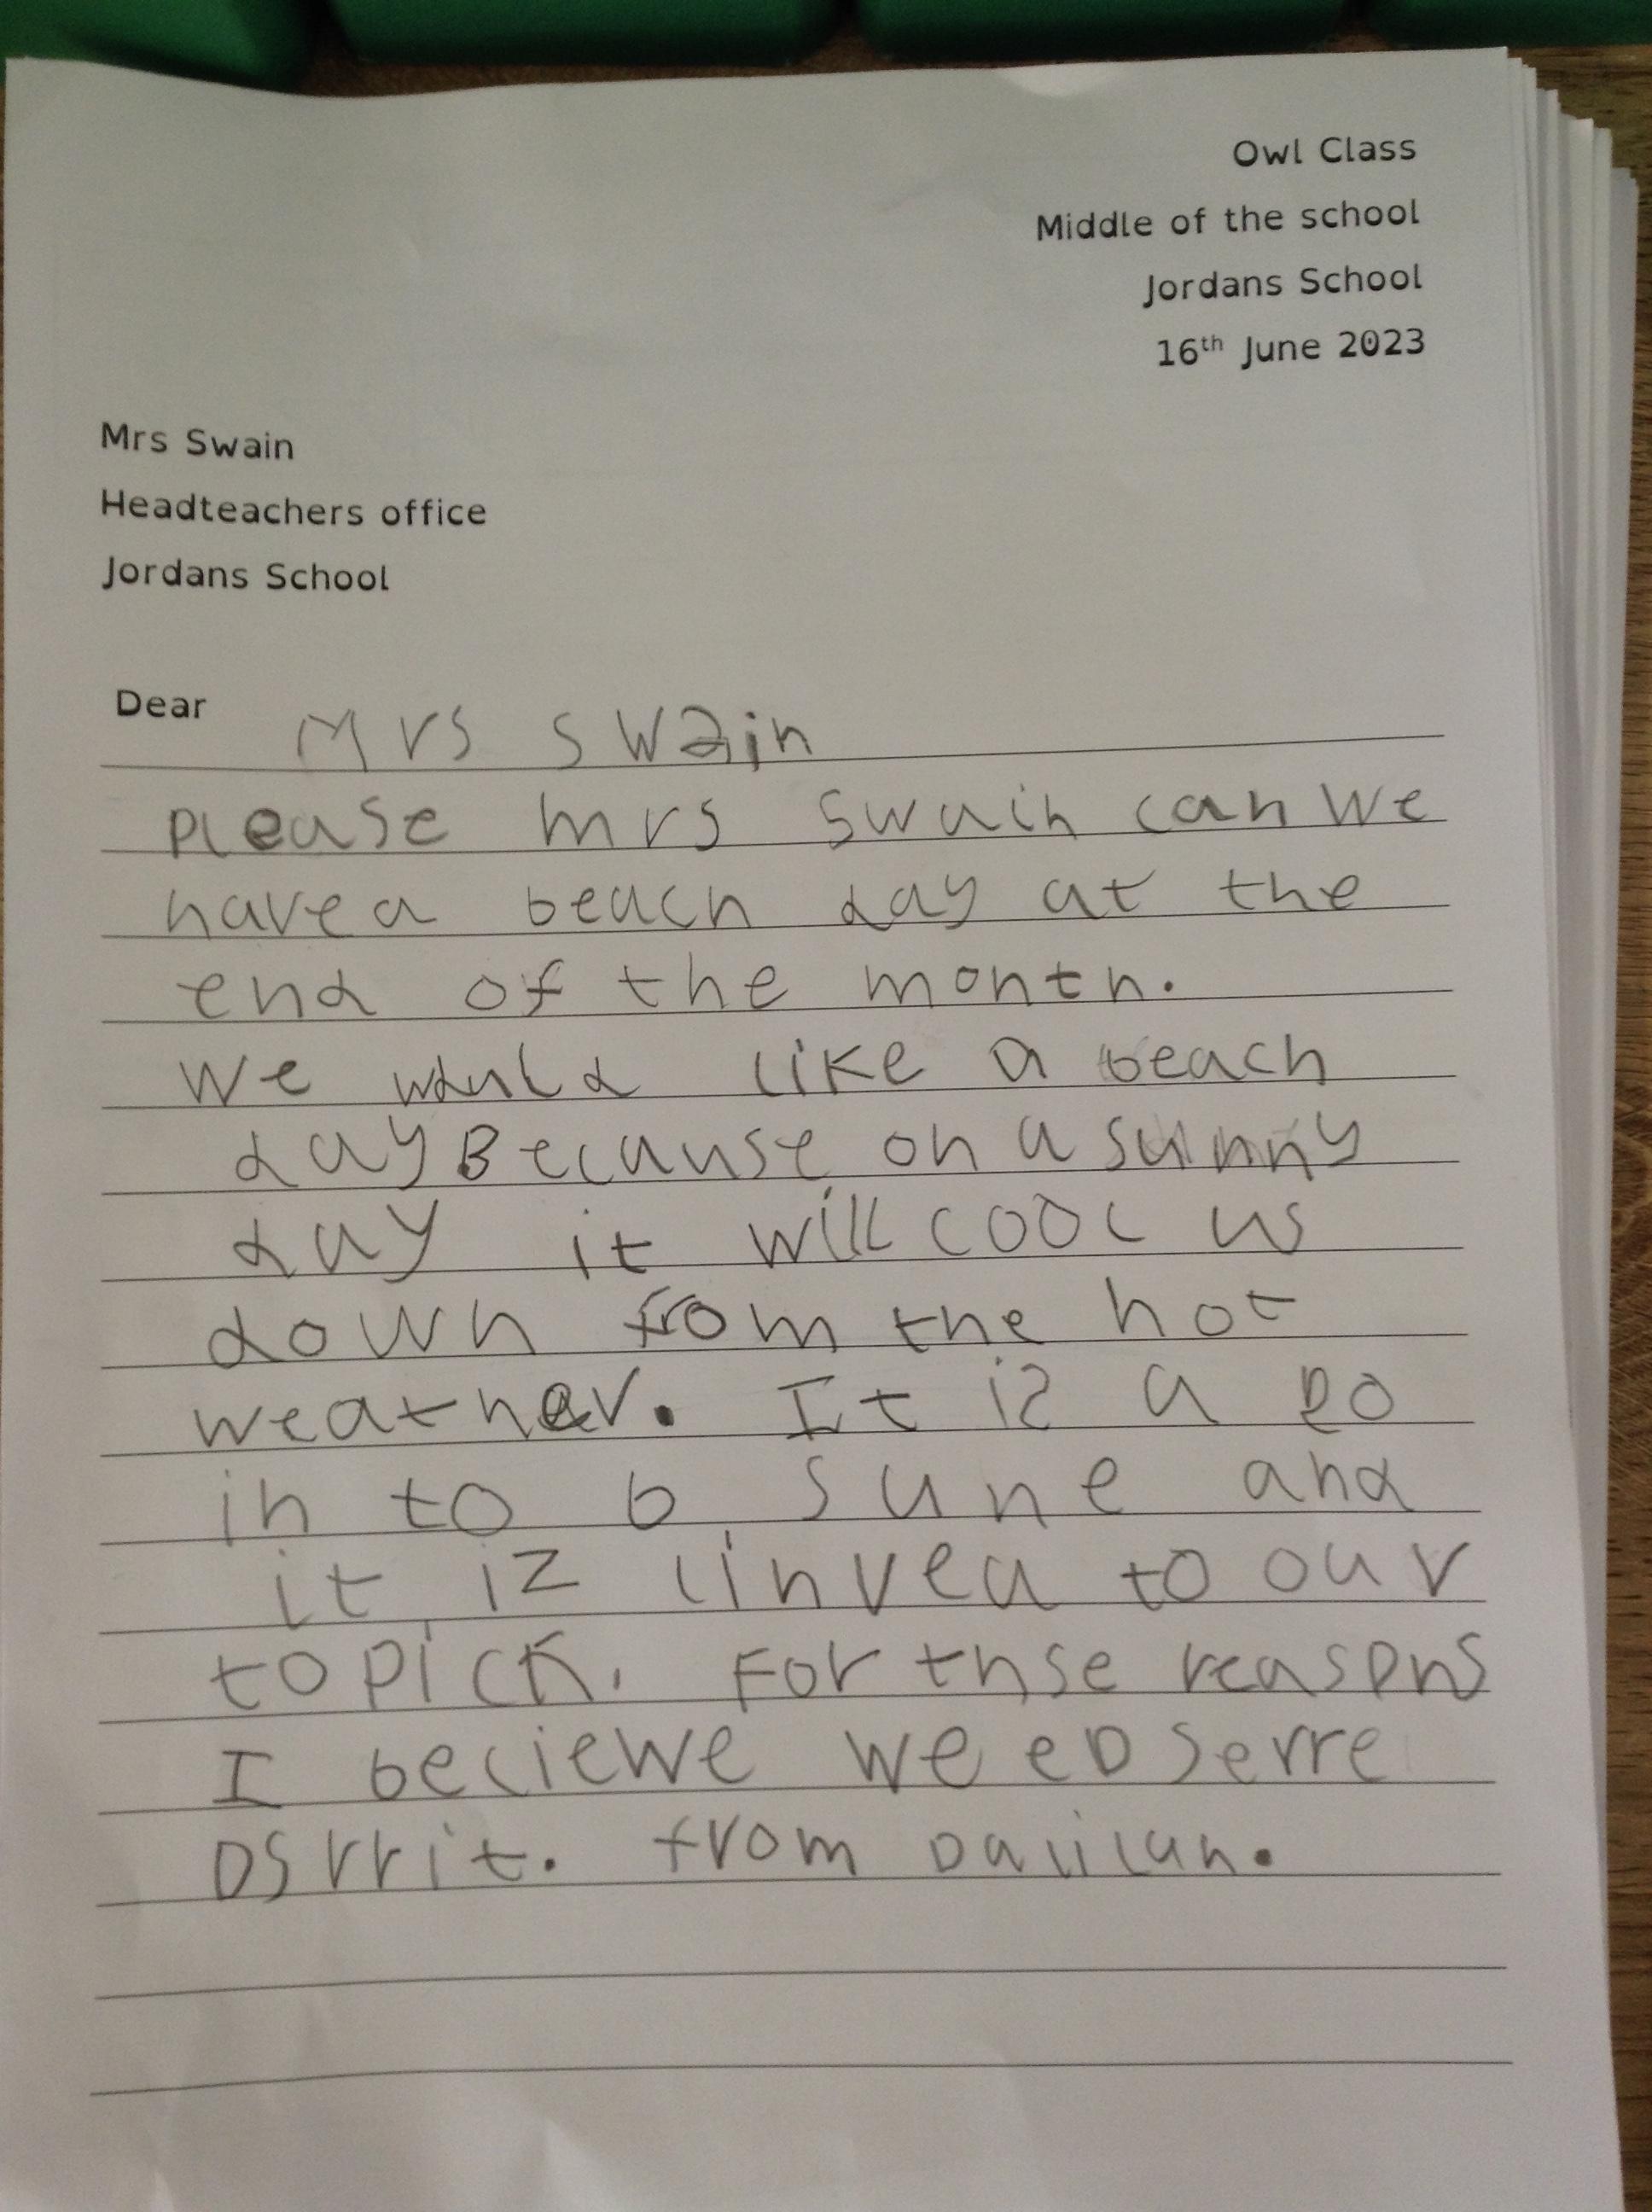 Owl Class
Middle of the school
Jordans School
16th June 2023
Mrs Swain
Headteachers office
Jordans School
Dear Mrs swain
please mrs swain can we
have a beach day at the
end of the month.
we would like a beach
day Because on a sunny
day it will cool us
down from the hot
weather. It is a go
in to b sune and
it iz linved to our
topick. For thse reasons
I beliewe we
from